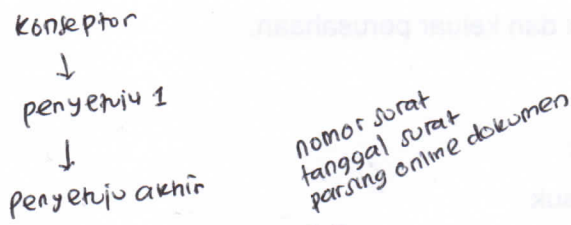 konseptor
↓
penyetuju 1
↓
penyetuju akhir
nomor surat
tanggal surat
parsing online dokumen